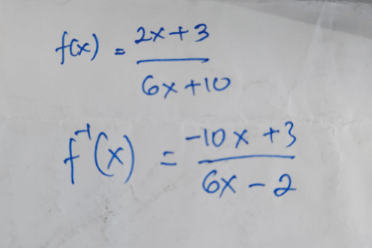 f(x) = 2x+3 / 6x+10
f⁻¹(x) = -10x+3 / 6x-2